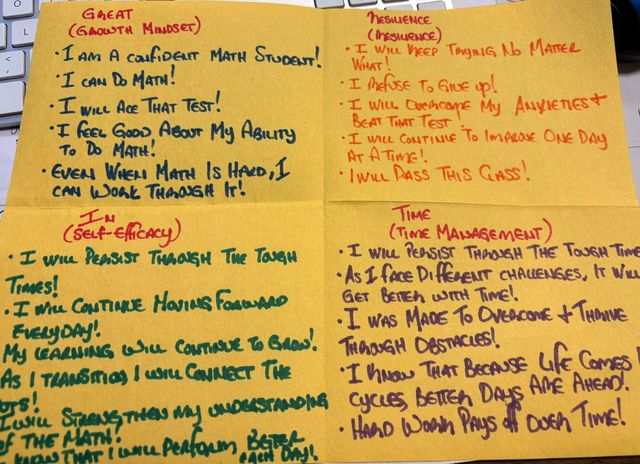 GREAT
(GROWTH MINDSET)
• I AM A CONFIDENT MATH STUDENT!
• I CAN DO MATH!
• I WILL ACE THAT TEST!
• I FEEL GOOD ABOUT MY ABILITY
TO DO MATH!
• EVEN WHEN MATH IS HARD, I
CAN WORK THROUGH IT!
RESILIENCE
(RESILIENCE)
• I WILL KEEP TRYING NO MATTER
WHAT!
• I REFUSE TO GIVE UP!
• I WILL OVERCOME MY ANXIETIES +
BEAT THAT TEST!
• I WILL CONTINUE TO IMPROVE ONE DAY
AT A TIME!
• I WILL PASS THIS CLASS!
IN
(SELF-EFFICACY)
• I WILL PERSIST THROUGH THE TOUGH
TIMES!
• I WILL CONTINUE MOVING FORWARD
EVERYDAY!
MY LEARNING WILL CONTINUE TO GROW!
AS I TRANSITION I WILL CONNECT THE
OTS!
I WILL STRENGTHEN MY UNDERSTANDING
OF THE MATH!
KNOW THAT I WILL PERFORM BETTER
EACH DAY!
TIME
(TIME MANAGEMENT)
• I WILL PERSIST THROUGH THE TOUGH TIME
• AS I FACE DIFFERENT CHALLENGES, IT WILL
GET BETTER WITH TIME!
• I WAS MADE TO OVERCOME + THRIVE
THROUGH OBSTACLES!
• I KNOW THAT BECAUSE LIFE COMES
CYCLES, BETTER DAYS ARE AHEAD!
• HARD WORK PAYS OFF OVER TIME!